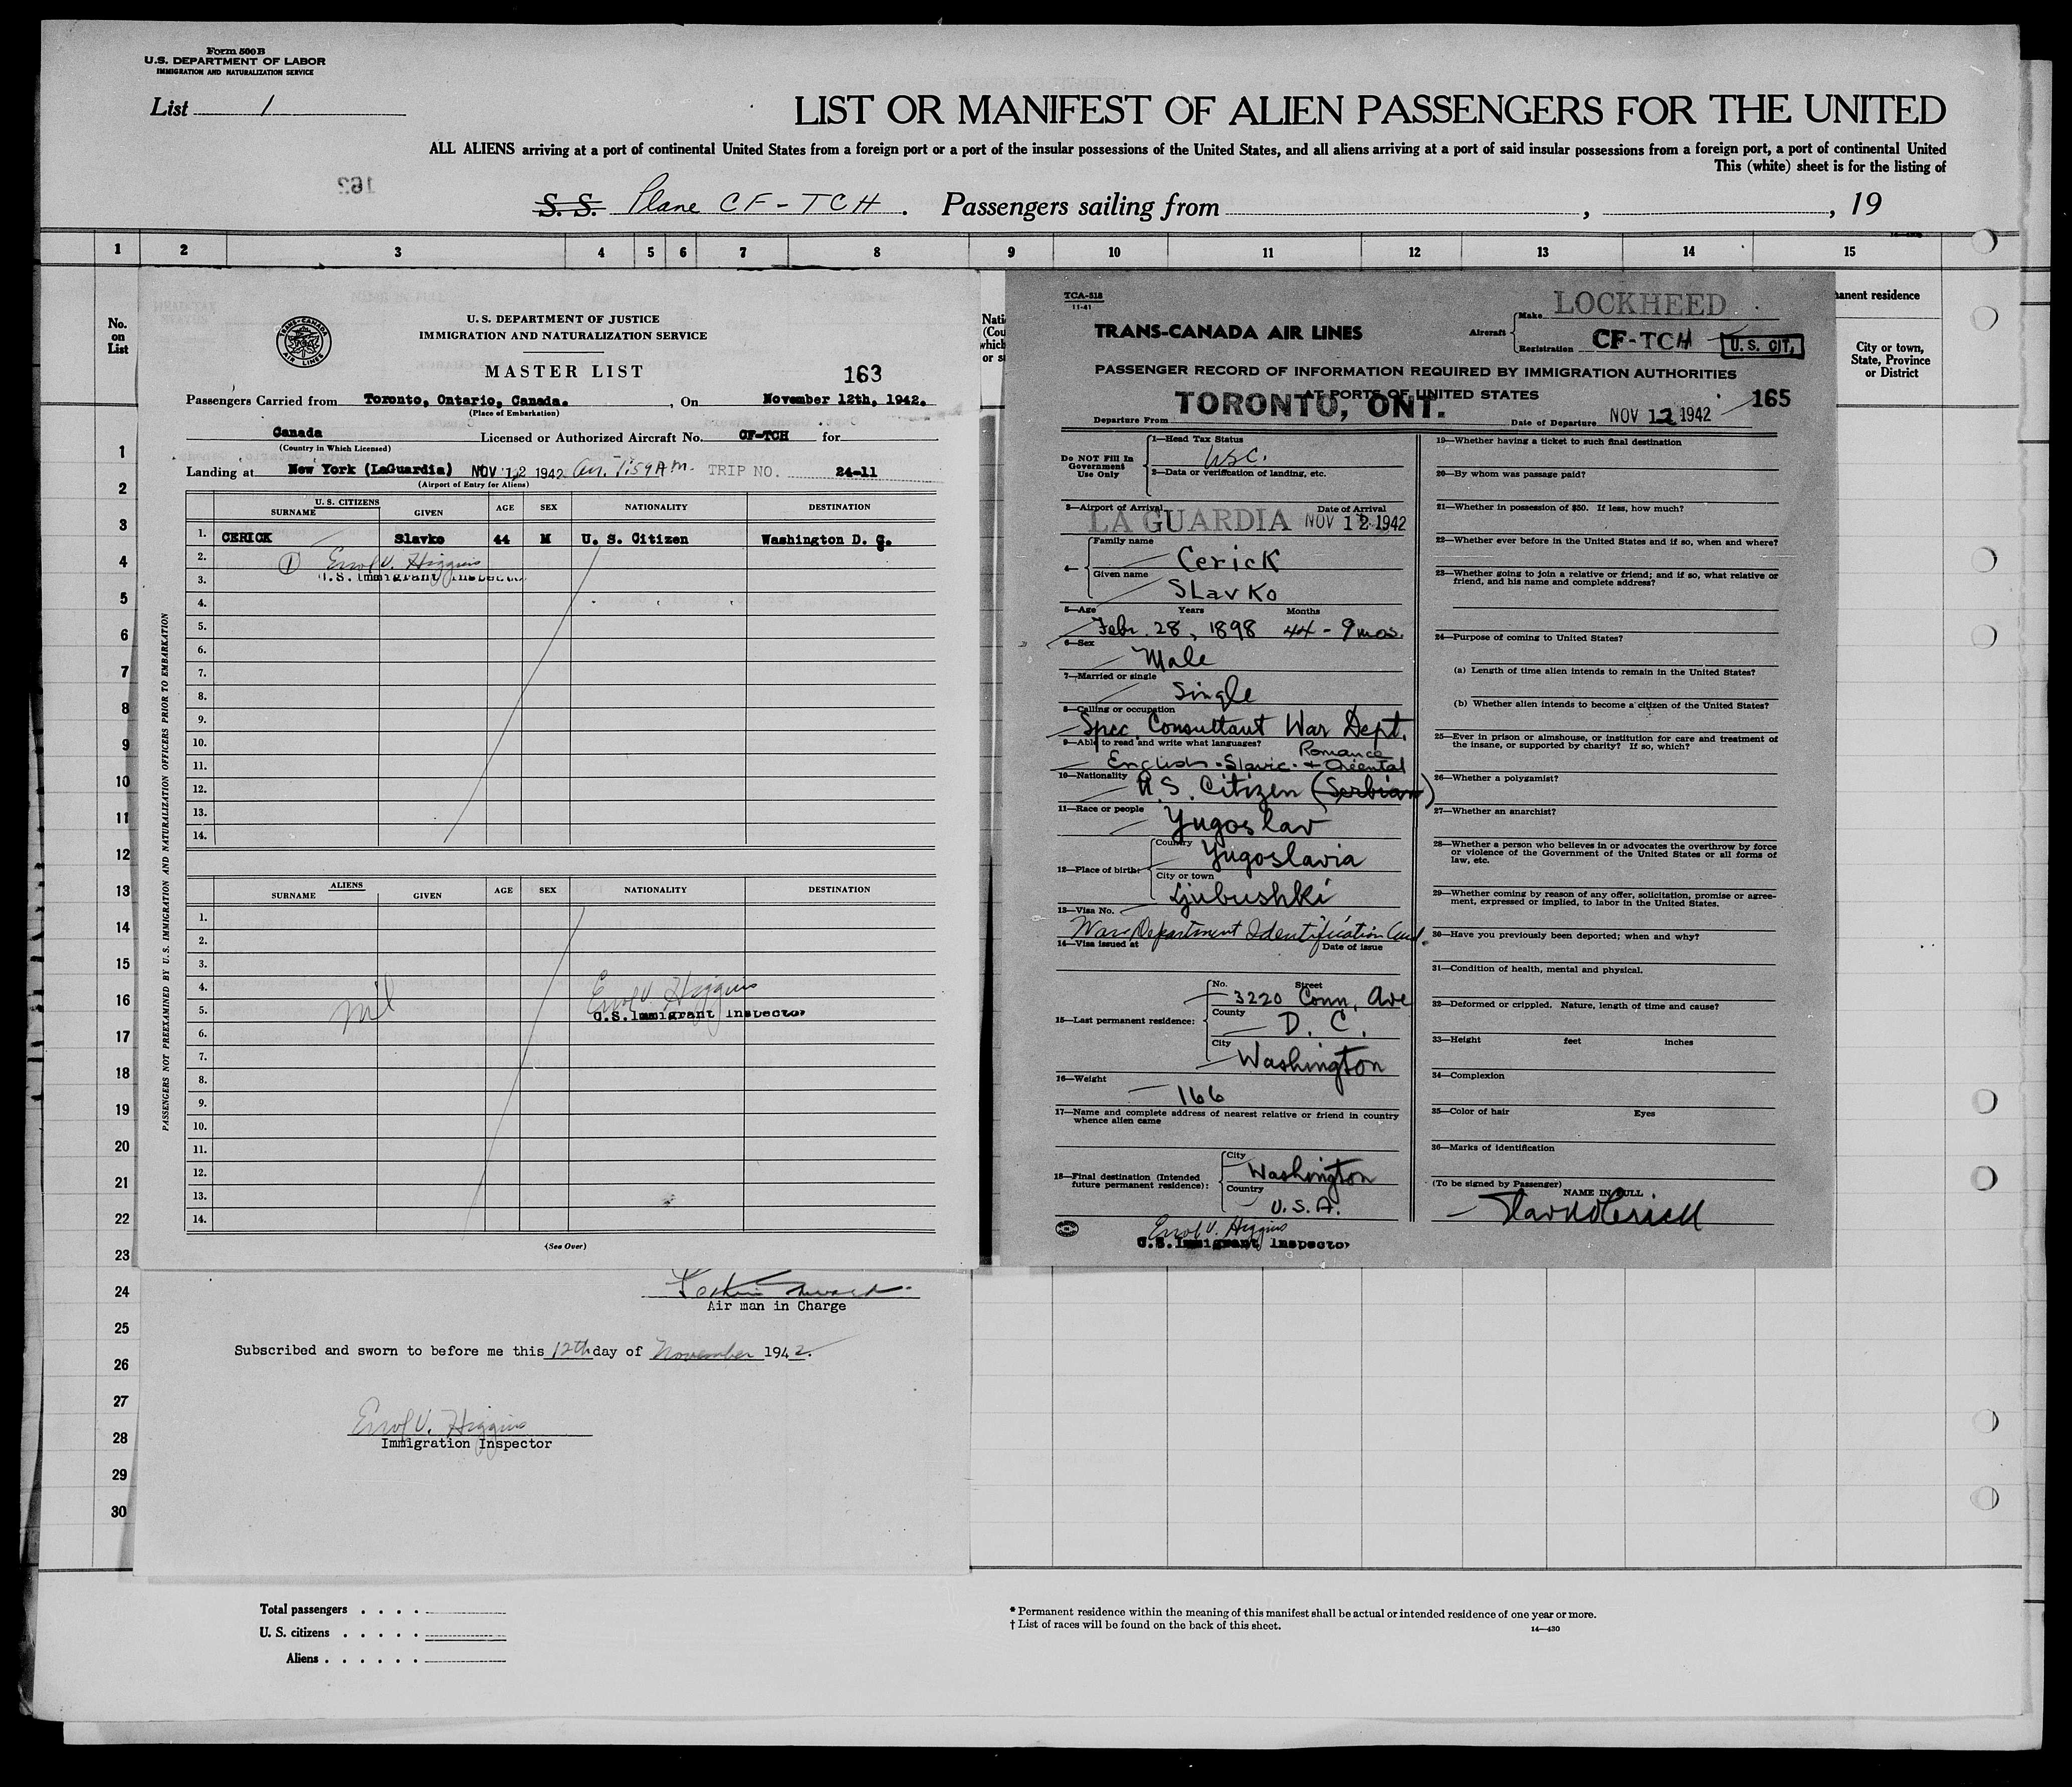 Form 500 B
U.S. DEPARTMENT OF LABOR
IMMIGRATION AND NATURALIZATION SERVICE
List 1
LIST OR MANIFEST OF ALIEN PASSENGERS FOR THE UNITED
ALL ALIENS arriving at a port of continental United States from a foreign port or a port of the insular possessions of the United States, and all aliens arriving at a port of said insular possessions from a foreign port, a port of continental United
This (white) sheet is for the listing of
162
S. S. Plane CF-TCH. Passengers sailing from , , 19
1 2 3 4 5 6 7 8 9 10 11 12 13 14 15
No. on List
1
2
3
4
5
6
7
8
9
10
11
12
13
14
15
16
17
18
19
20
21
22
23
24
25
26
27
28
29
30
TRANS-CANADA AIR LINES
U. S. DEPARTMENT OF JUSTICE
IMMIGRATION AND NATURALIZATION SERVICE
MASTER LIST
163
Passengers Carried from Toronto, Ontario, Canada. , On November 12th, 1942.
(Place of Embarkation)
Canada Licensed or Authorized Aircraft No. CF-TCH for
(Country in Which Licensed)
Landing at New York (LaGuardia) NOV 12 1942 arr. 7:59 AM. TRIP NO. 24-11
(Airport of Entry for Aliens)
U. S. CITIZENS
SURNAME GIVEN AGE SEX NATIONALITY DESTINATION
1. CERICK Slavko 44 M U. S. Citizen Washington D. C.
2. 1 Errol V. Higgins
3. U.S. Immigrant Inspector
4.
5.
6.
7.
8.
9.
10.
11.
12.
13.
14.
ALIENS
SURNAME GIVEN AGE SEX NATIONALITY DESTINATION
1.
2.
3.
4. Errol V. Higgins
5. nil U.S. Immigrant Inspector
6.
7.
8.
9.
10.
11.
12.
13.
14.
(See Over)
PASSENGERS NOT PREEXAMINED BY U. S. IMMIGRATION AND NATURALIZATION OFFICERS PRIOR TO EMBARKATION
Air man in Charge
Subscribed and sworn to before me this 12th day of November 1942.
Errol V. Higgins
Immigration Inspector
Total passengers . . . .
U. S. citizens . . . . .
Aliens . . . . . .
TCA-518
11-41
TRANS-CANADA AIR LINES
Aircraft
Make LOCKHEED
Registration CF-TCH
U. S. CIT.
PASSENGER RECORD OF INFORMATION REQUIRED BY IMMIGRATION AUTHORITIES
AT PORTS OF UNITED STATES
165
Departure From TORONTO, ONT. Date of Departure NOV 12 1942
Do NOT Fill In Government Use Only
1—Head Tax Status
USC.
2—Data or verification of landing, etc.
3—Airport of Arrival Date of Arrival
LA GUARDIA NOV 12 1942
4—
Family name
Cerick
Given name
Slavko
5—Age Years Months
Febr. 28, 1898 44 - 9 mos.
6—Sex
Male
7—Married or single
Single
8—Calling or occupation
Spec. Consultant War Dept.
9—Able to read and write what languages?
Romance
English - Slavic - + Oriental
10—Nationality
U.S. Citizen (Serbian)
11—Race or people
Yugoslav
12—Place of birth:
Country
Yugoslavia
City or town
Ljubushki
13—Visa No.
War Department Identification Card.
14—Visa issued at Date of issue
15—Last permanent residence:
No. Street
3220 Conn. Ave
County
D. C.
City
Washington
16—Weight
166
17—Name and complete address of nearest relative or friend in country
whence alien came
18—Final destination (Intended
future permanent residence):
City
Washington
Country
U. S. A.
Errol V. Higgins
U.S. Immigrant Inspector
19—Whether having a ticket to such final destination
20—By whom was passage paid?
21—Whether in possession of $50. If less, how much?
22—Whether ever before in the United States and if so, when and where?
23—Whether going to join a relative or friend; and if so, what relative or
friend, and his name and complete address?
24—Purpose of coming to United States?
(a) Length of time alien intends to remain in the United States?
(b) Whether alien intends to become a citizen of the United States?
25—Ever in prison or almshouse, or institution for care and treatment of
the insane, or supported by charity? If so, which?
26—Whether a polygamist?
27—Whether an anarchist?
28—Whether a person who believes in or advocates the overthrow by force
or violence of the Government of the United States or all forms of
law, etc.
29—Whether coming by reason of any offer, solicitation, promise or agree-
ment, expressed or implied, to labor in the United States.
30—Have you previously been deported; when and why?
31—Condition of health, mental and physical.
32—Deformed or crippled. Nature, length of time and cause?
33—Height feet inches
34—Complexion
35—Color of hair Eyes
36—Marks of identification
(To be signed by Passenger)
NAME IN FULL
Slavko Cerick
anent residence
City or town,
State, Province
or District
* Permanent residence within the meaning of this manifest shall be actual or intended residence of one year or more.
† List of races will be found on the back of this sheet.
14—430